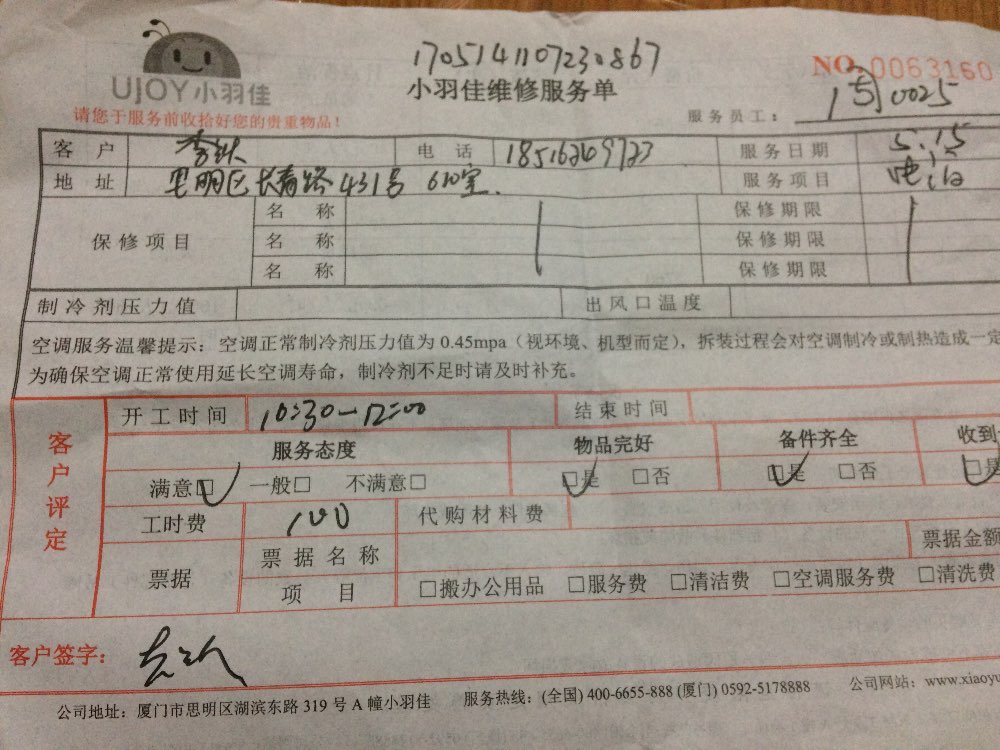 1705141107230867
UJOY小羽佳
小羽佳维修服务单
NO. 0063160
请您于服务前收拾好您的贵重物品！
服务员工： 0025
客户 电话 服务日期 5.15
地址 思明区长青路431号 610室. 服务项目 电池
保修项目
名称 保修期限
名称 保修期限
名称 保修期限
制冷剂压力值 出风口温度
空调服务温馨提示：空调正常制冷剂压力值为 0.45mpa（视环境、机型而定），拆装过程会对空调制冷或制热造成一定
为确保空调正常使用延长空调寿命，制冷剂不足时请及时补充。
客户评定
开工时间 10:30-12:00 结束时间
服务态度 物品完好 备件齐全 收到
满意□ 一般□ 不满意□ □是 □否 □是 □否 □是
工时费 100 代购材料费
票据
票据名称 票据金额
项目 □搬办公用品 □服务费 □清洁费 □空调服务费 □清洗费
客户签字：
公司地址：厦门市思明区湖滨东路 319 号 A 幢小羽佳 服务热线：(全国) 400-6655-888 (厦门) 0592-5178888 公司网站：www.xiaoyu